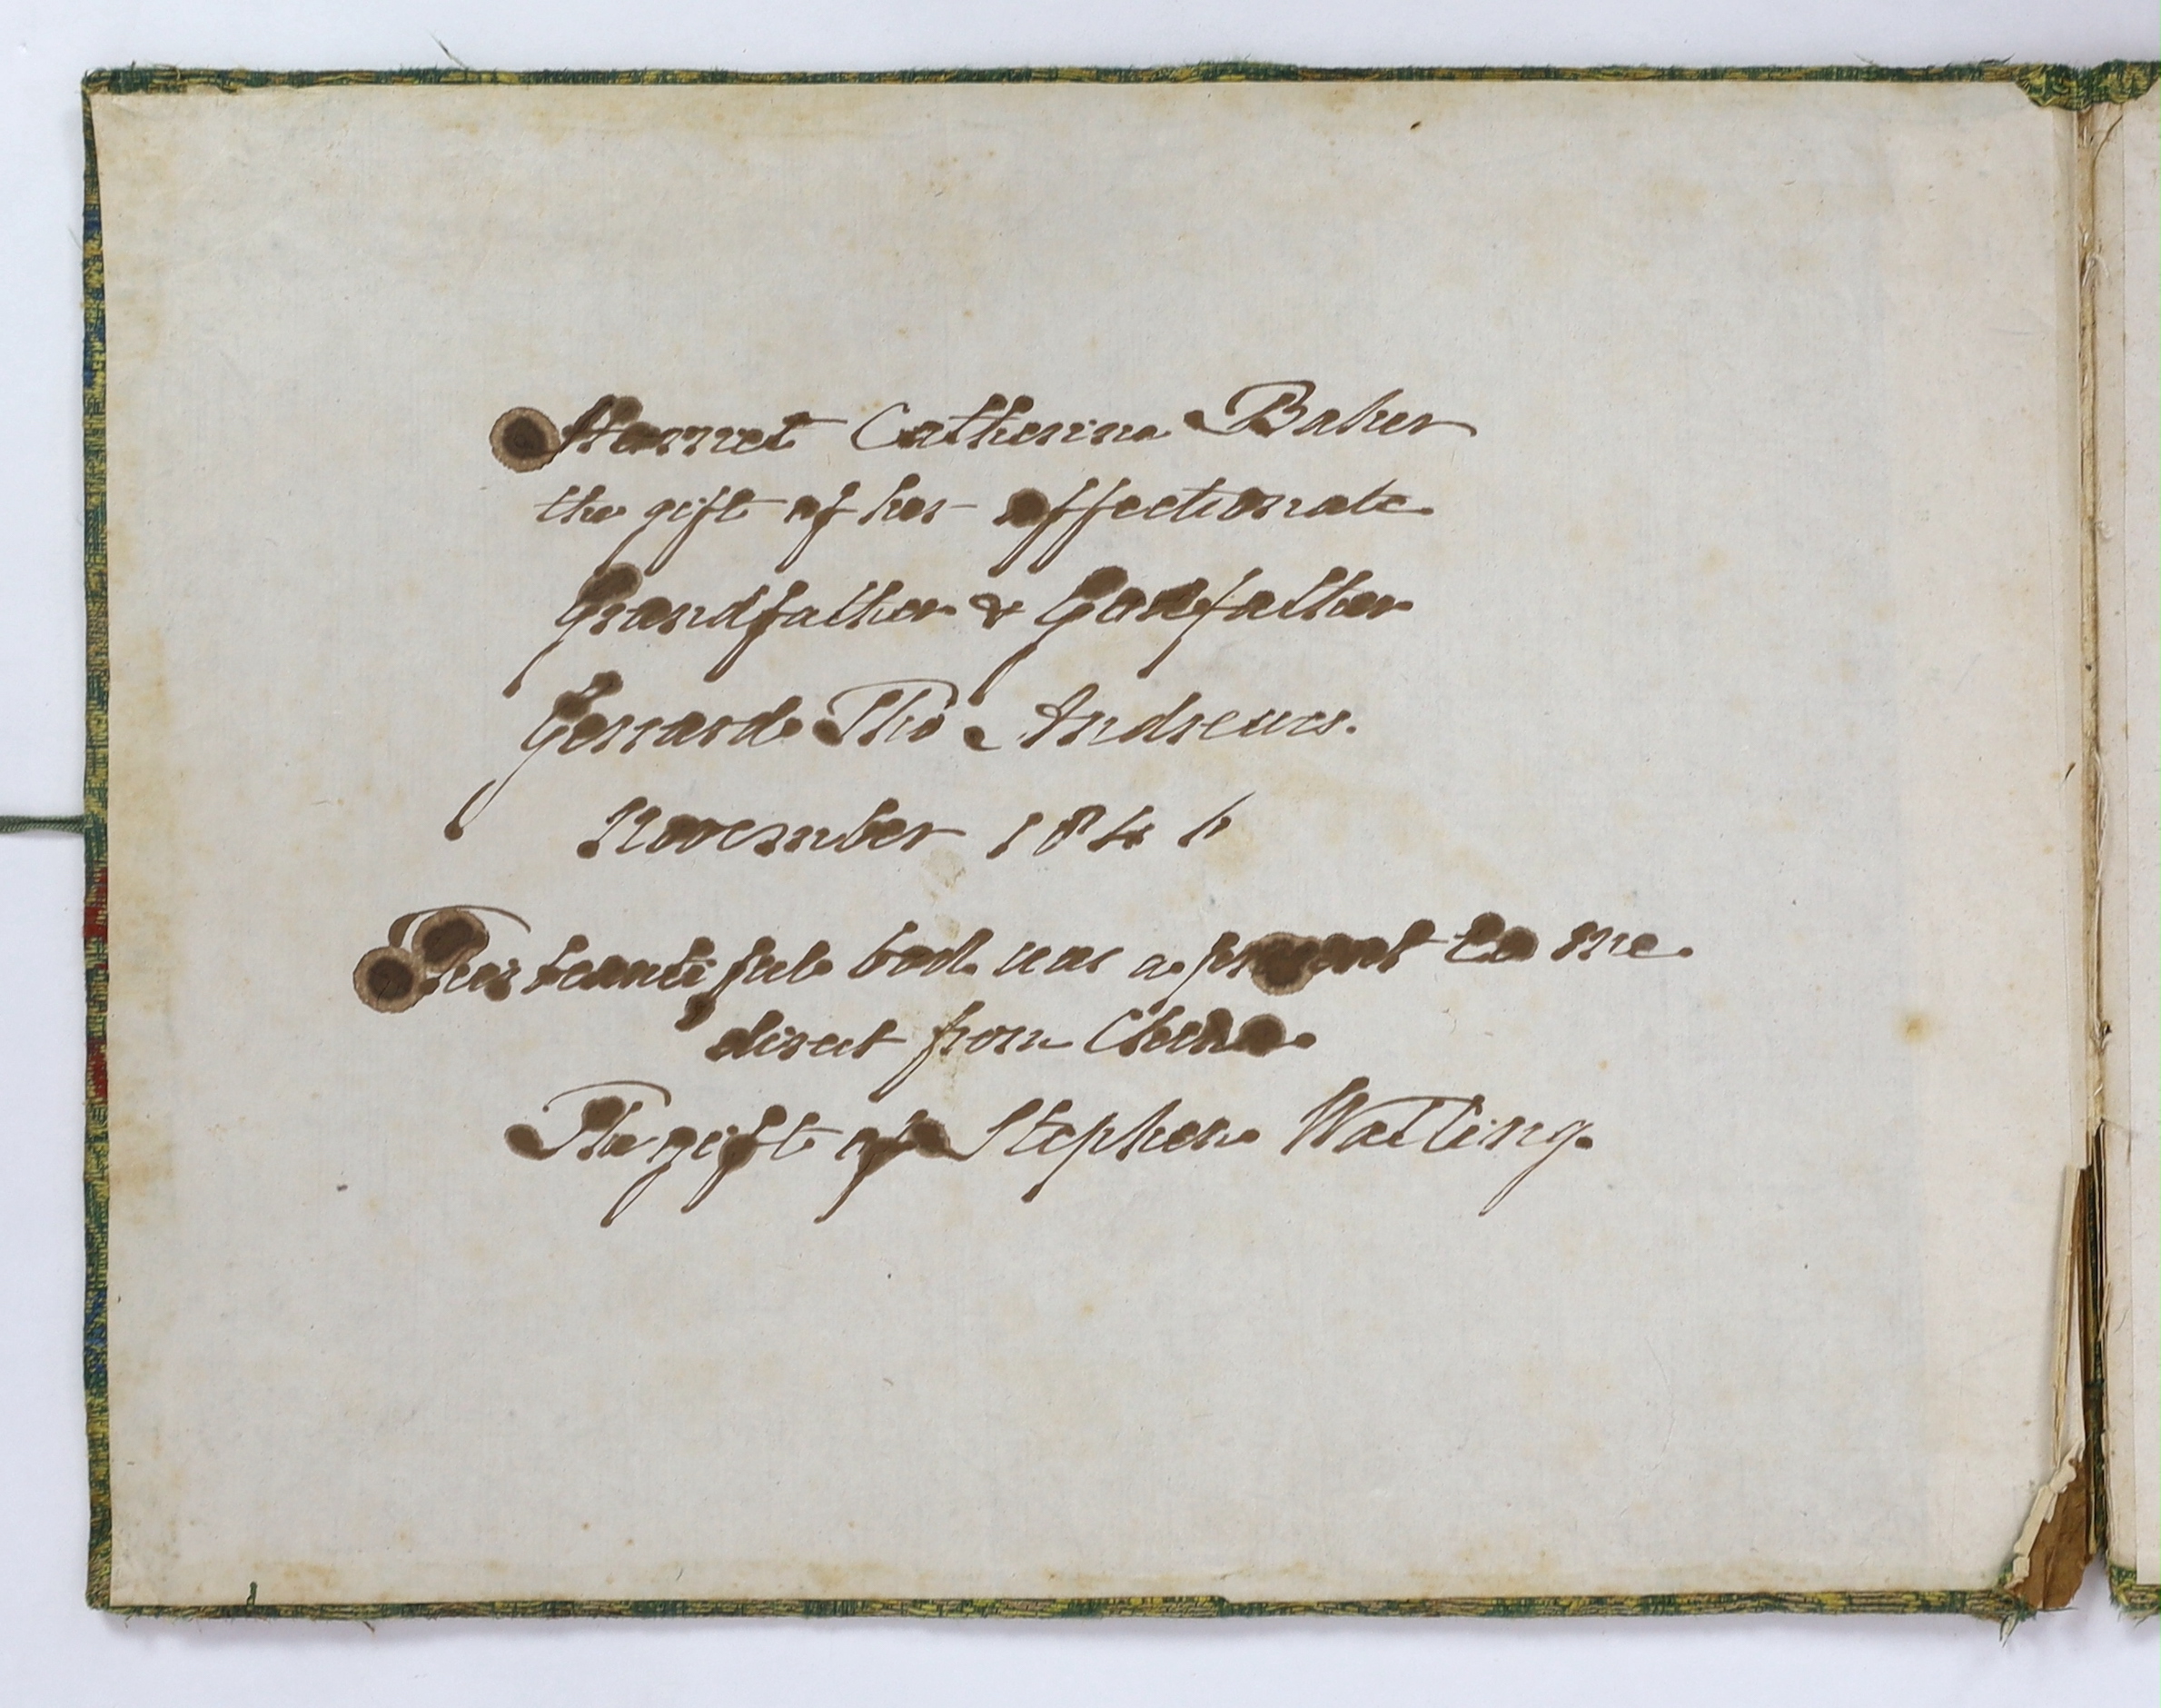 Harriet Catherine Baker
the gift of her affectionate
Grandfather & Godfather
Gerrard Tho Andrewes.
November 184
This beautiful was a present to me
direct from China
The gift of Stephen Watling.